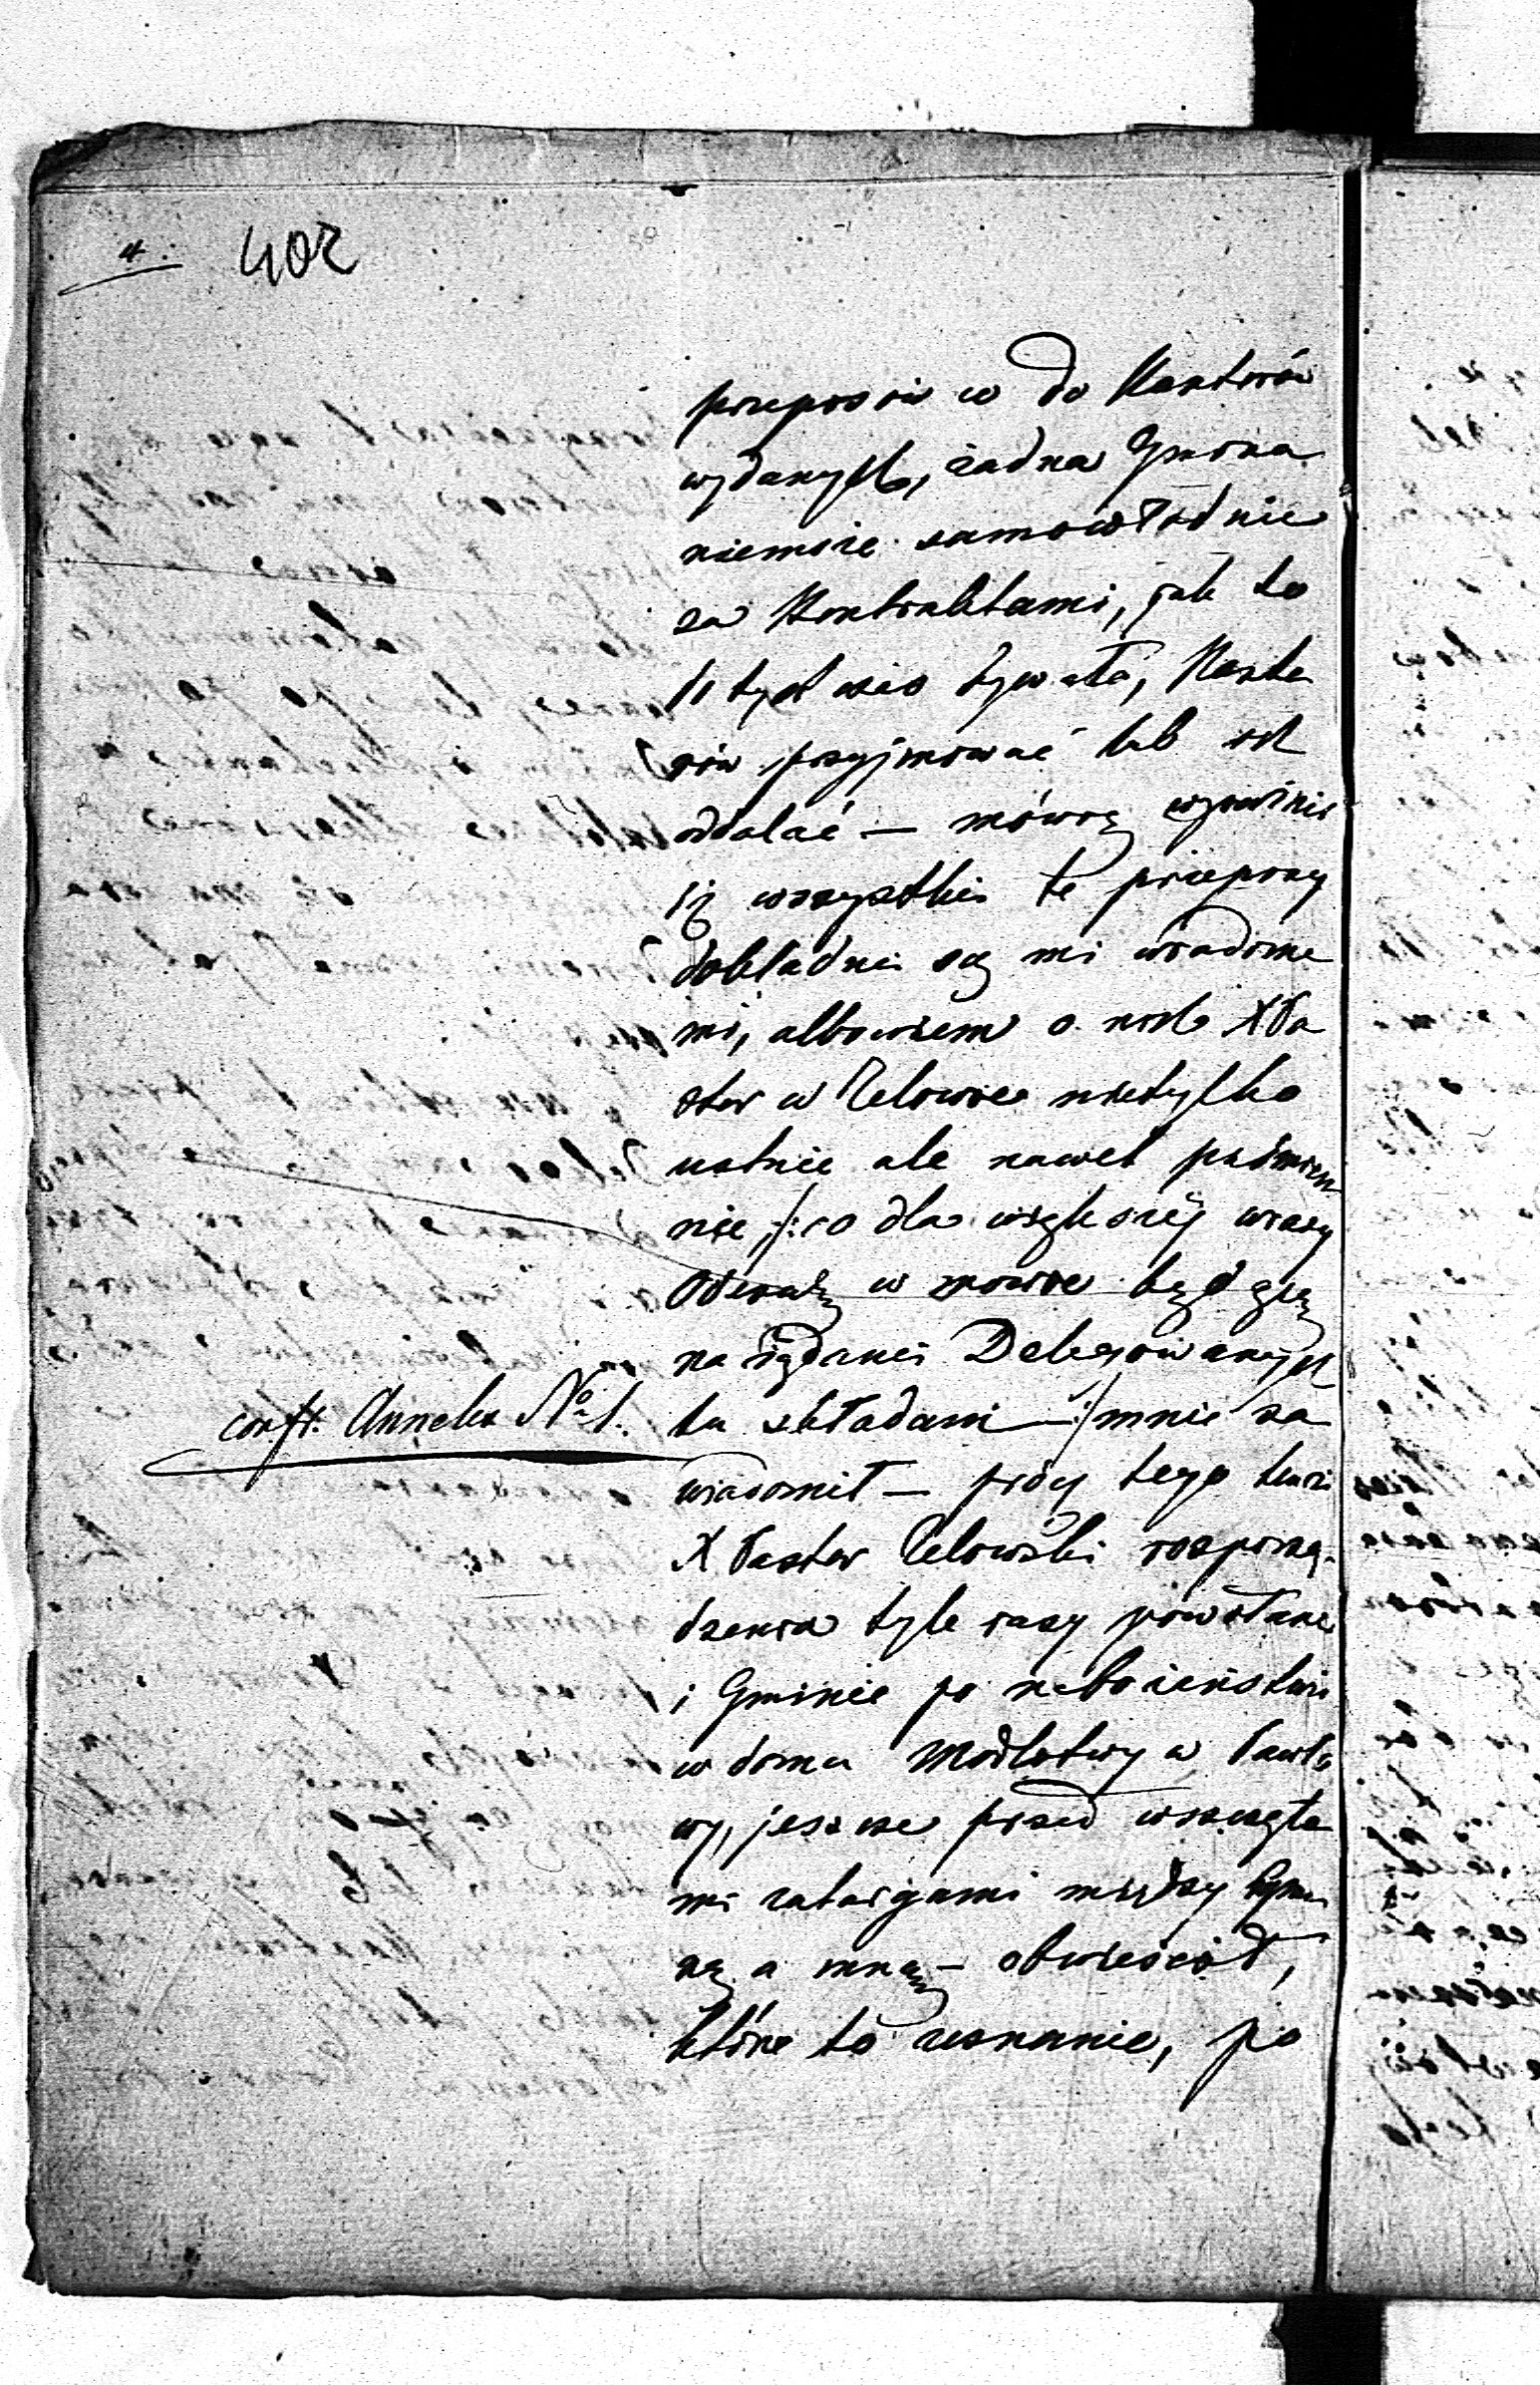 4. 402
przepisów co do Kantorów
wydanych, żadna Gmina
niemoże samowładnie
za Kontraktami, jak to
dotychczas bywało, Kanto
rów przyjmować lub od
oddalać — mówię wyraźnie
iż wszystkie te przepisy
dokładnie są mi wiadome
mi, albowiem o nich XPa
stor w Zelowie nietylko
ustnie ale nawet piśmien
nie /: co dla większej wiary
Odezwę w mowie będącą
na żądanie Delegowanych
conft. Annelex No 1. tu składam :/ mnie za
wiadomił — prócz tego tenże
X Pastor Zelowski rozporzą-
dzenia tyle razy powołane
i Gminie po nabożeństwie
w domu Modlitwy w
jeszcze przed wszczęte
mi zatargami między Gmi
ną a mną — obwieścił,
które to zeznanie, po